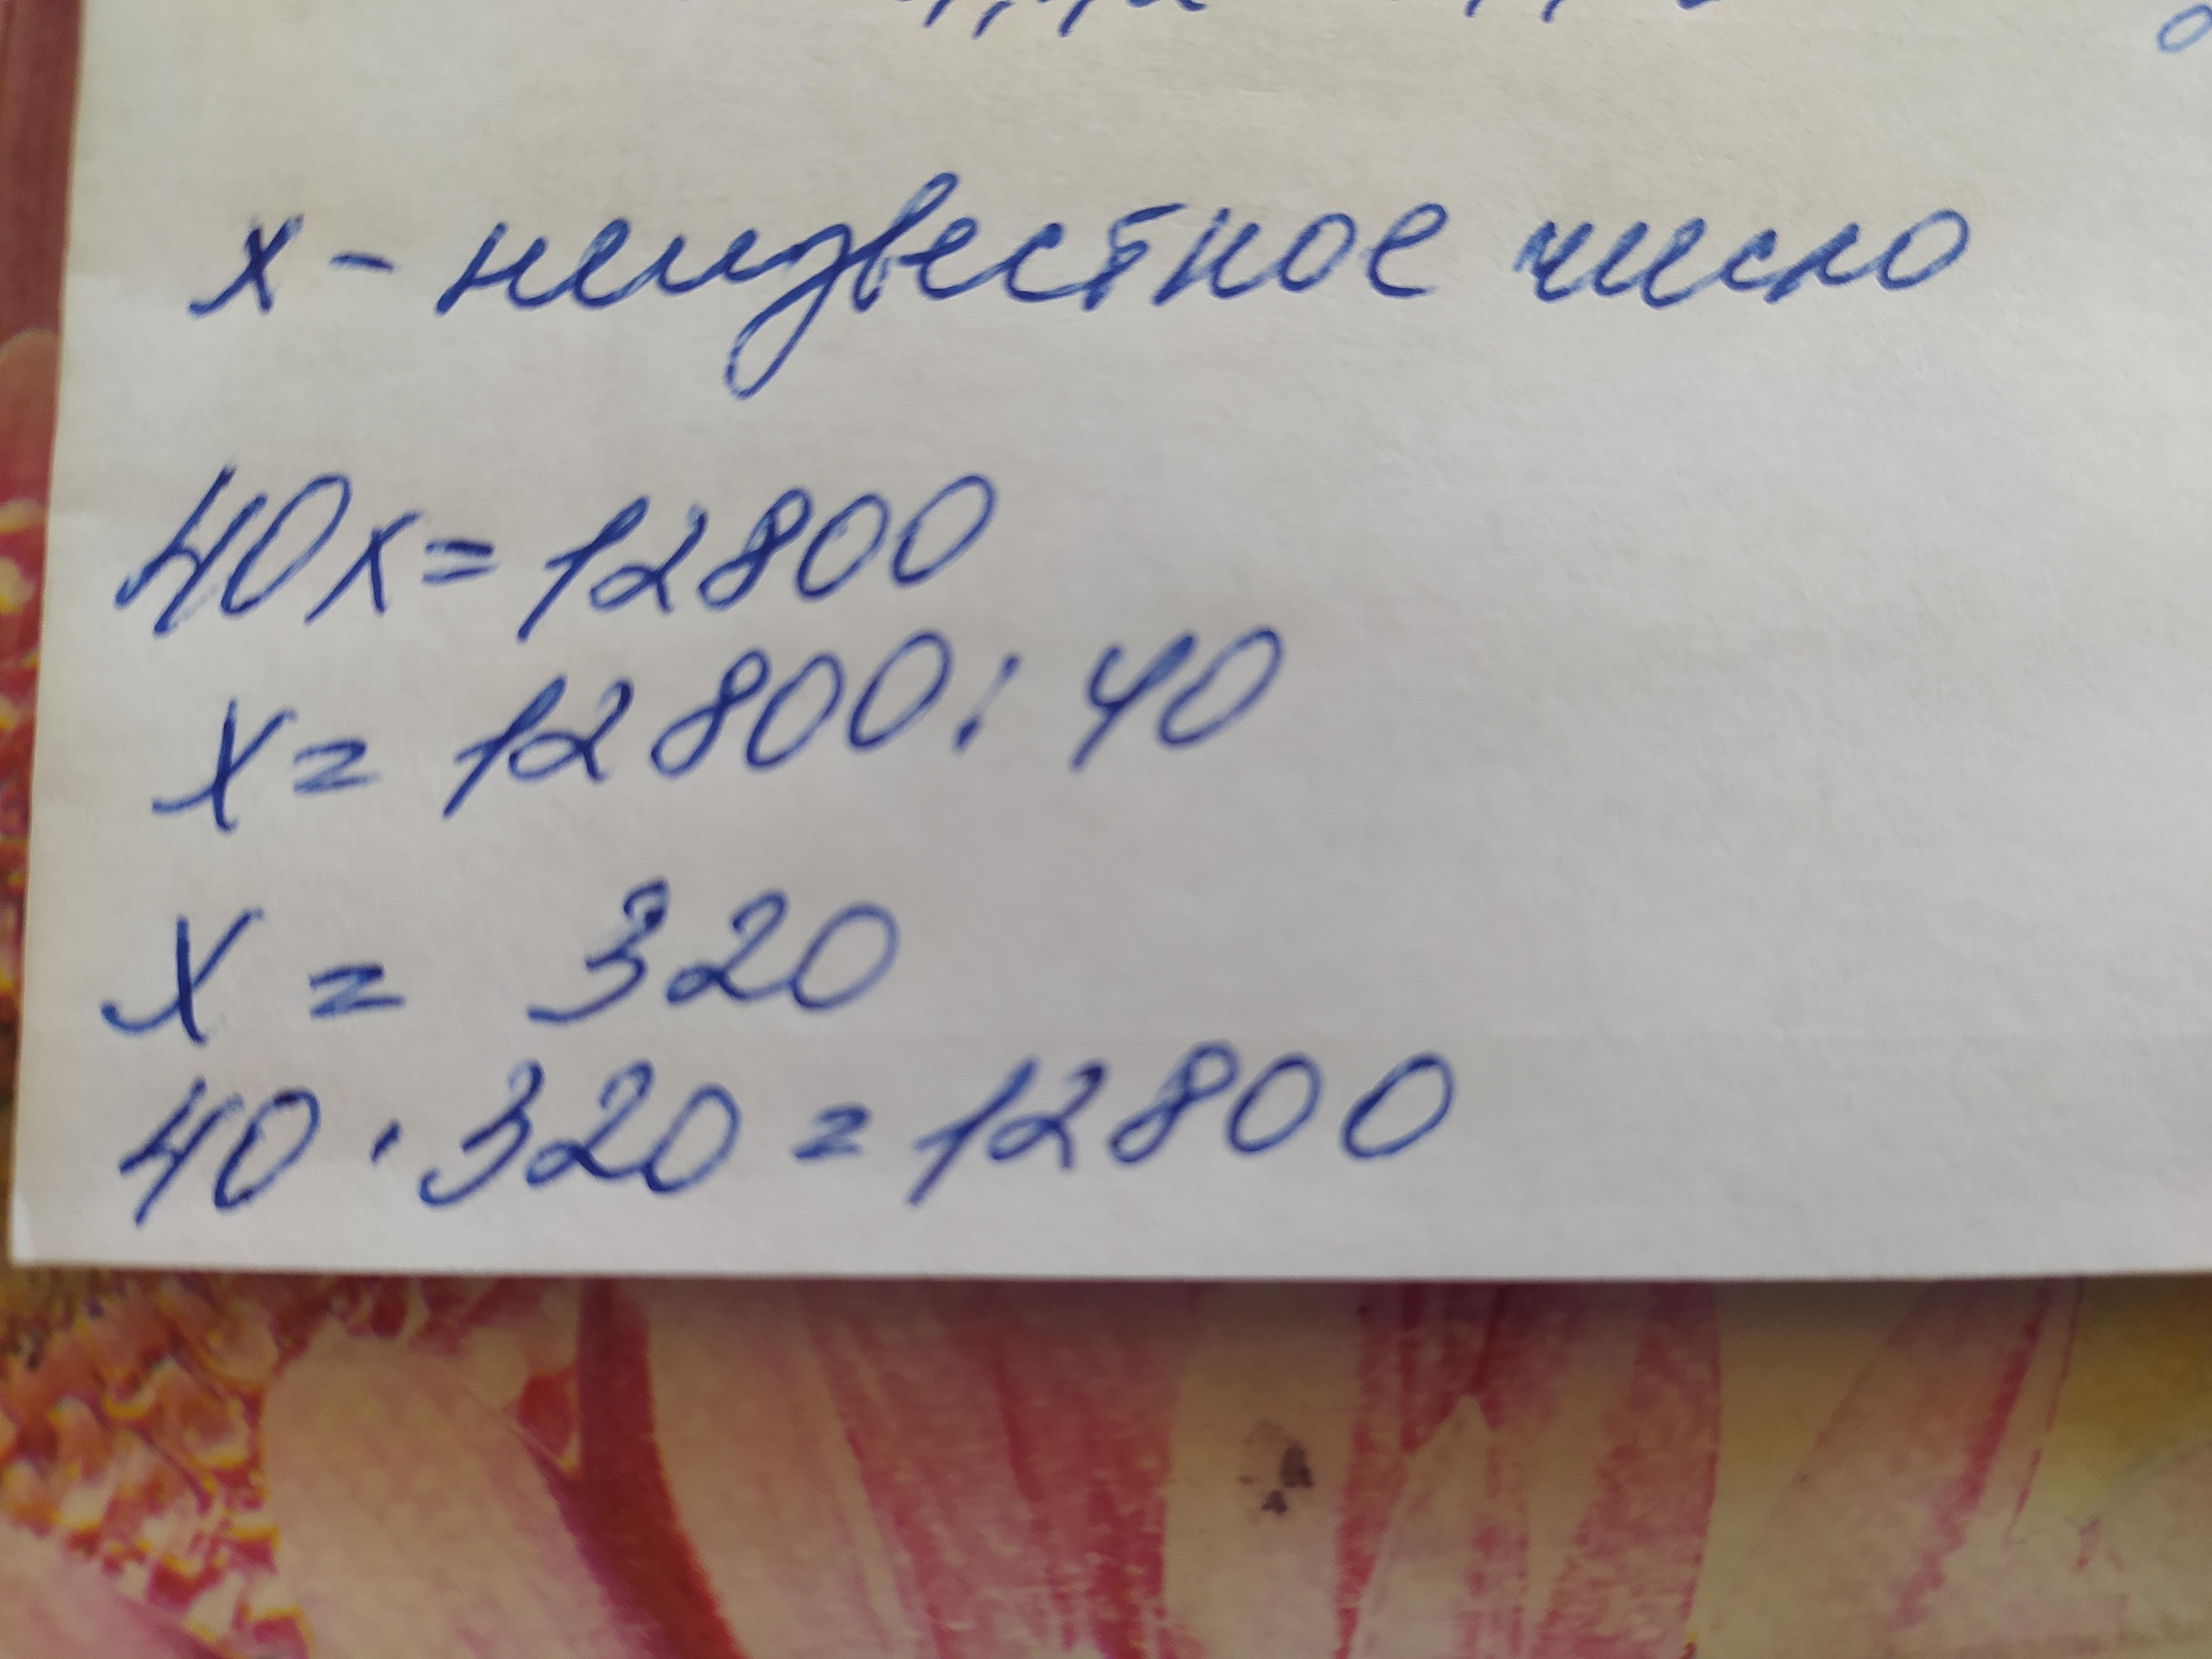 x - неизвестное число
40x = 12800
x = 12800 : 40
x = 320
40 · 320 = 12800